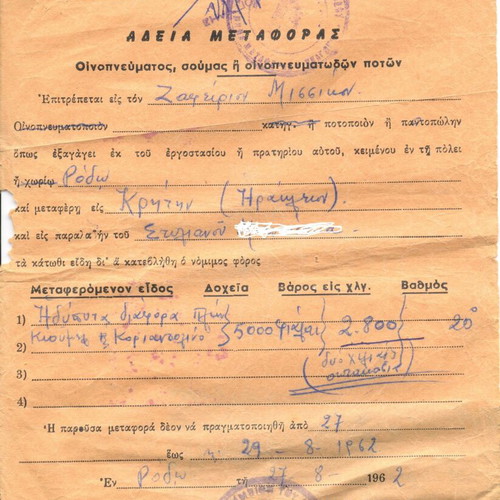 ΑΔΕΙΑ ΜΕΤΑΦΟΡΑΣ
Οἰνοπνεύματος, σούμας ἢ οἰνοπνευματωδῶν ποτῶν
Ἐπιτρέπεται εἰς τὸν Ζαφείριον
Οἰνοπνευματοποιὸν κατηγ. ἢ ποτοποιὸν ἢ παντοπώλην
ὅπως ἐξαγάγει ἐκ τοῦ ἐργοστασίου ἢ πρατηρίου αὐτοῦ, κειμένου ἐν τῇ πόλει
ἢ χωρίῳ Ρόδῳ
καὶ μεταφέρῃ εἰς Κρήτην (Ἡράκλειον)
καὶ εἰς παραλαβὴν τοῦ Στυλιανοῦ
τὰ κάτωθι εἴδη δι' ἃ κατεβλήθη ὁ νόμιμος φόρος
Μεταφερόμενον εἶδος Δοχεῖα Βάρος εἰς χλγ. Βαθμὸς
1) Ἡδύποτα διάφορα πλὴν
2) 5000 φιάλαι 2.800 20°
3) (δύο χιλιάδες
ὀκτακόσια)
4)
Ἡ παροῦσα μεταφορὰ δέον νὰ πραγματοποιηθῇ ἀπὸ 27
ἕως 29-8-1962
Ἐν Ρόδῳ τῇ 27 8 1962